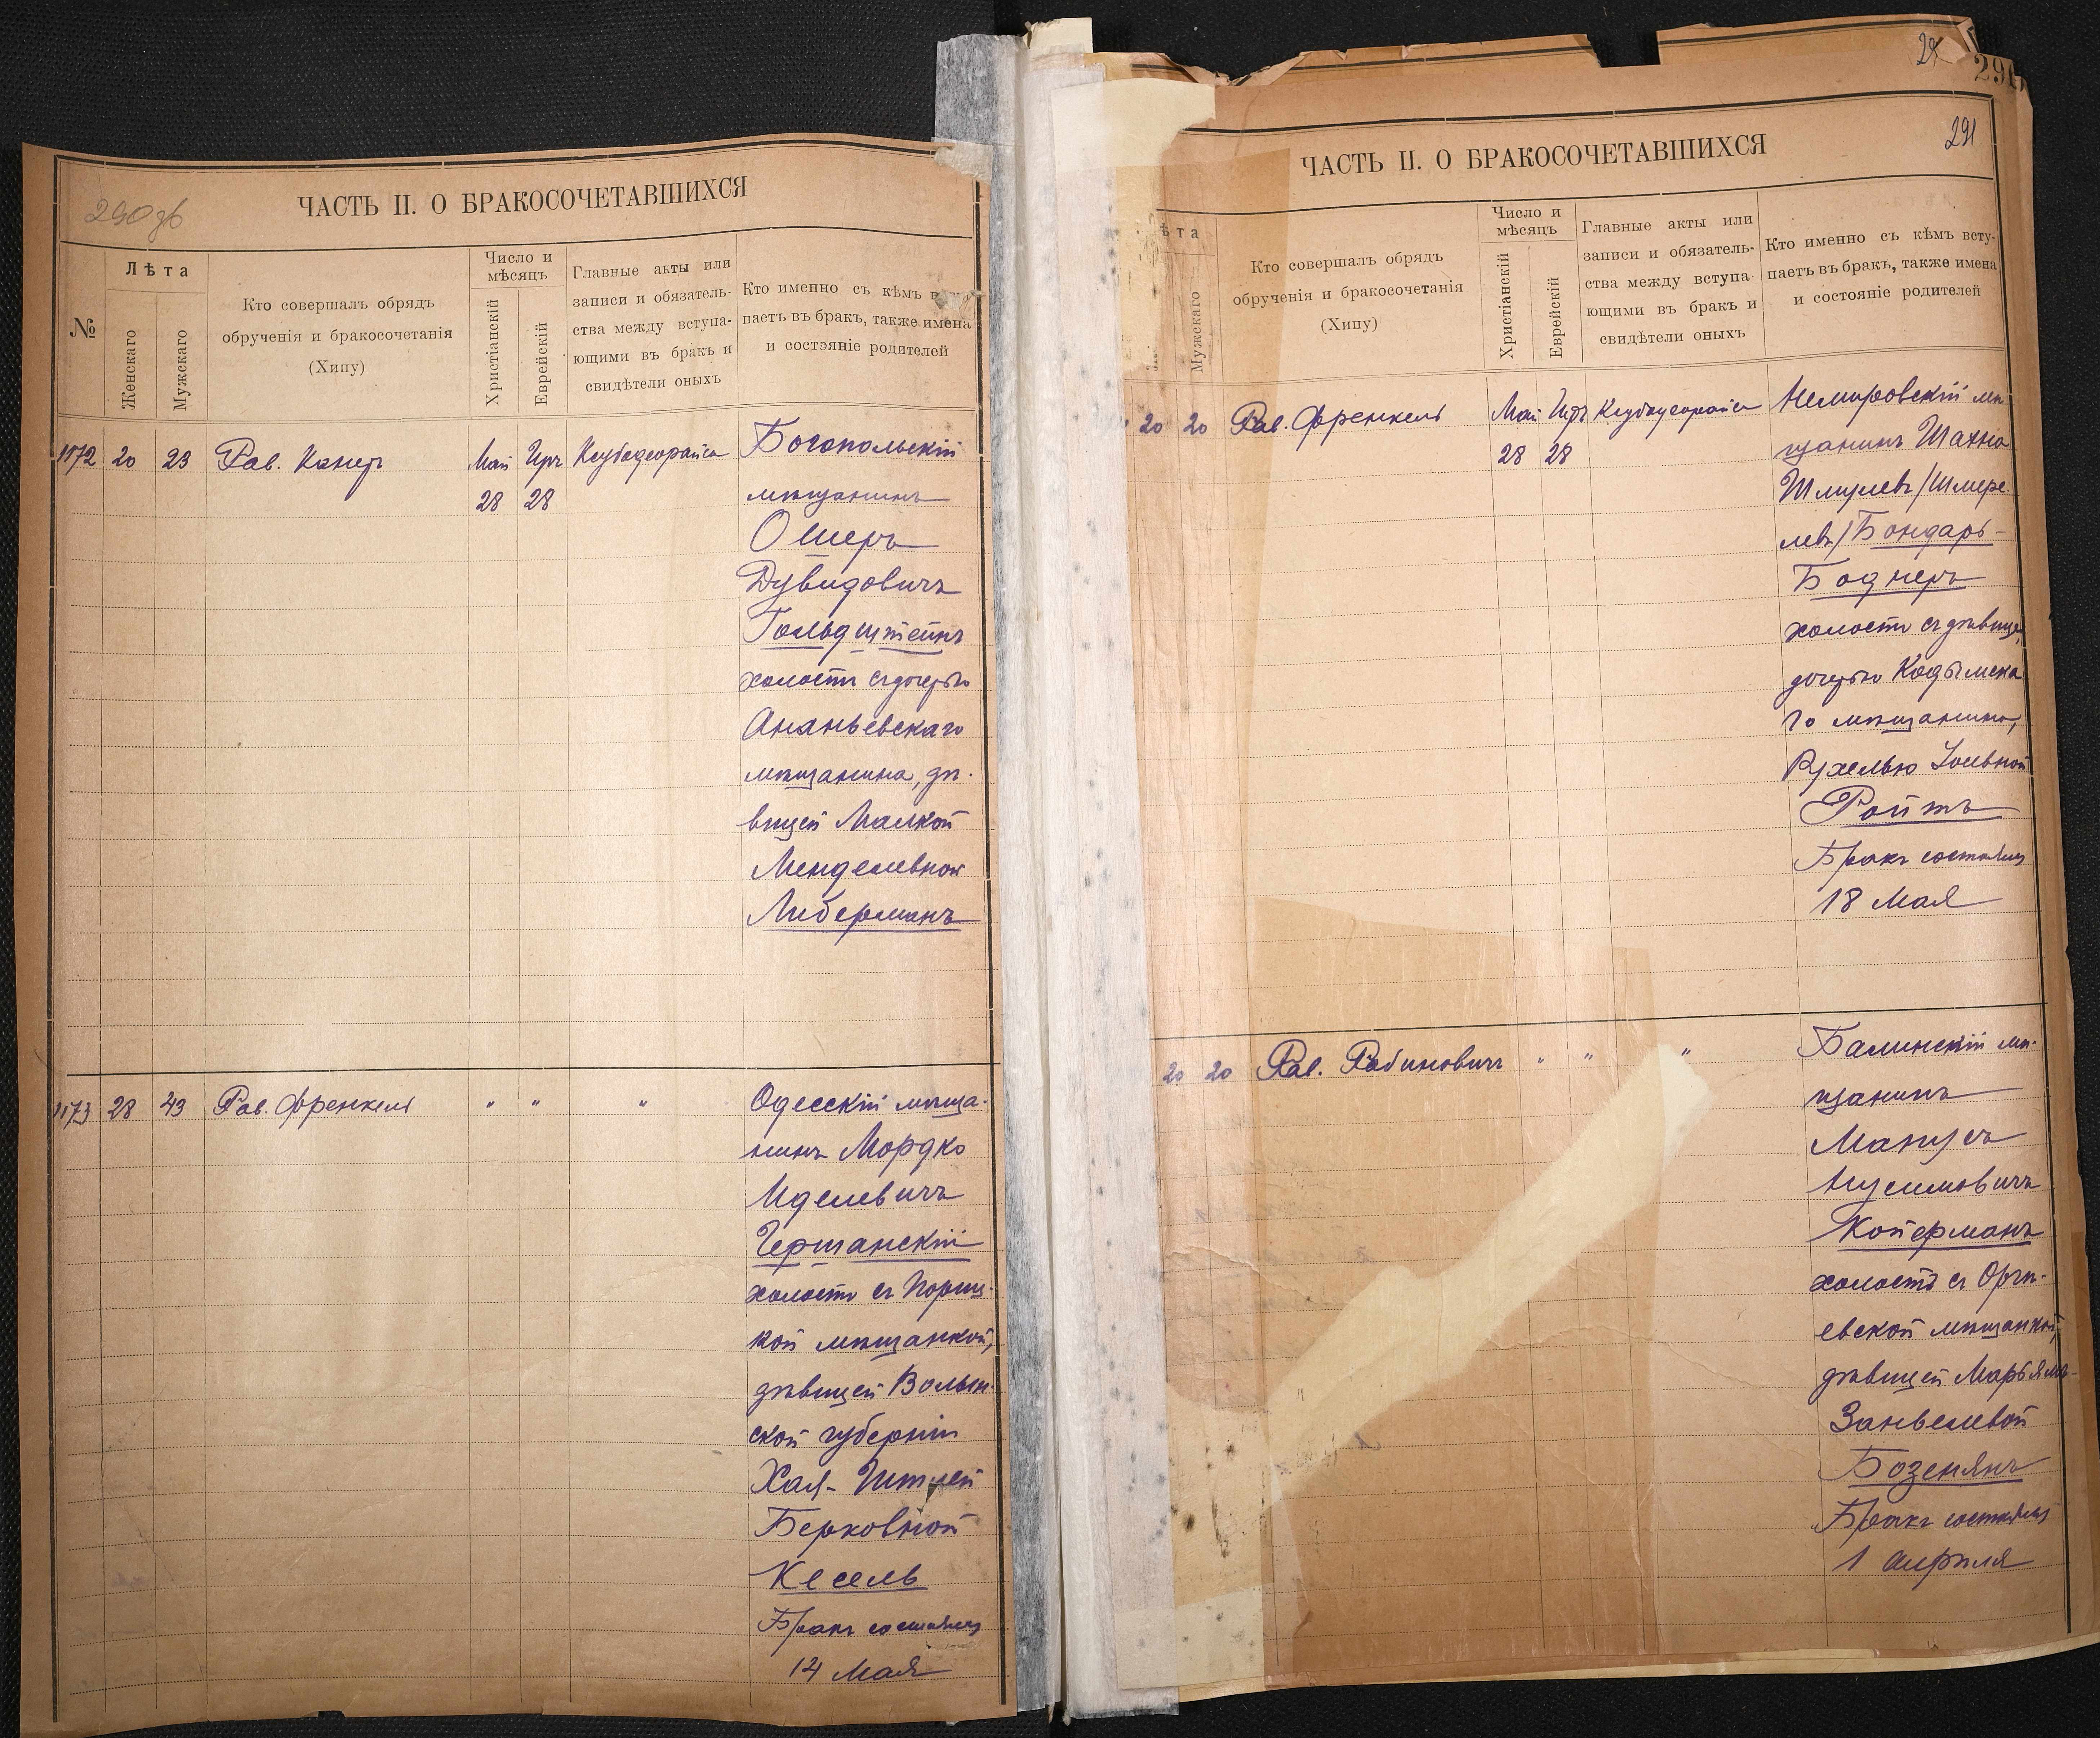 290 об
ЧАСТЬ II. О БРАКОСОЧЕТАВШИХСЯ
№
Лѣта
Женскаго
Мужскаго
Кто совершалъ обрядъ
обрученія и бракосочетанія
(Хипу)
Число и
мѣсяцъ
Христіанскій
Еврейскій
Главные акты или
записи и обязатель-
ства между вступа-
ющими въ бракъ и
свидѣтели оныхъ
Кто именно съ кѣмъ
паетъ въ бракъ, также имена
и состояніе родителей
1172 20 23 Рав. Канеръ Май Иръ
28 28
Богопольскій
мѣщанинъ
Ошеръ
Дувидовичъ
Гольдштейнъ
холостъ съ дочерью
Ананьевскаго
мѣщанина, дѣ-
вицей Малкой
Менделевной
Либерманъ
1173 28 43 Рав. Френкель " " "
Одесскій мѣща-
нинъ Мордко
Иделевичъ
Гершанскій
холостъ съ
кой мѣщанкой,
дѣвицей Волын-
ской губерніи
Хая-
Берковной
Кесель
Бракъ состоялся
14 Мая
29
291
ЧАСТЬ II. О БРАКОСОЧЕТАВШИХСЯ
ѣта
Мужскаго
Кто совершалъ обрядъ
обрученія и бракосочетанія
(Хипу)
Число и
мѣсяцъ
Христіанскій
Еврейскій
Главные акты или
записи и обязатель-
ства между вступа-
ющими въ бракъ и
свидѣтели оныхъ
Кто именно съ кѣмъ всту-
паетъ въ бракъ, также имена
и состояніе родителей
20 20 Рав. Френкель Май Иръ
28 28
Немировскій мѣ-
щанинъ Шахно
Шмулевъ/Шмере-
левъ/Бондарь-
Боднеръ
холостъ съ дѣвицей,
дочерью Кодымска
го мѣщанина,
Рухелью
Ройтъ
Бракъ состоялся
18 Мая
20 20 Рав. Рабиновичъ " " "
Балинскій мѣ-
щанинъ
Манусъ
Нусимовичъ
Койерманъ
холостъ съ Оргѣ-
евской мѣщанкой,
дѣвицей Марьямъ-
Занвелевой
Бозенянъ
Бракъ состоялся
1 апрѣля